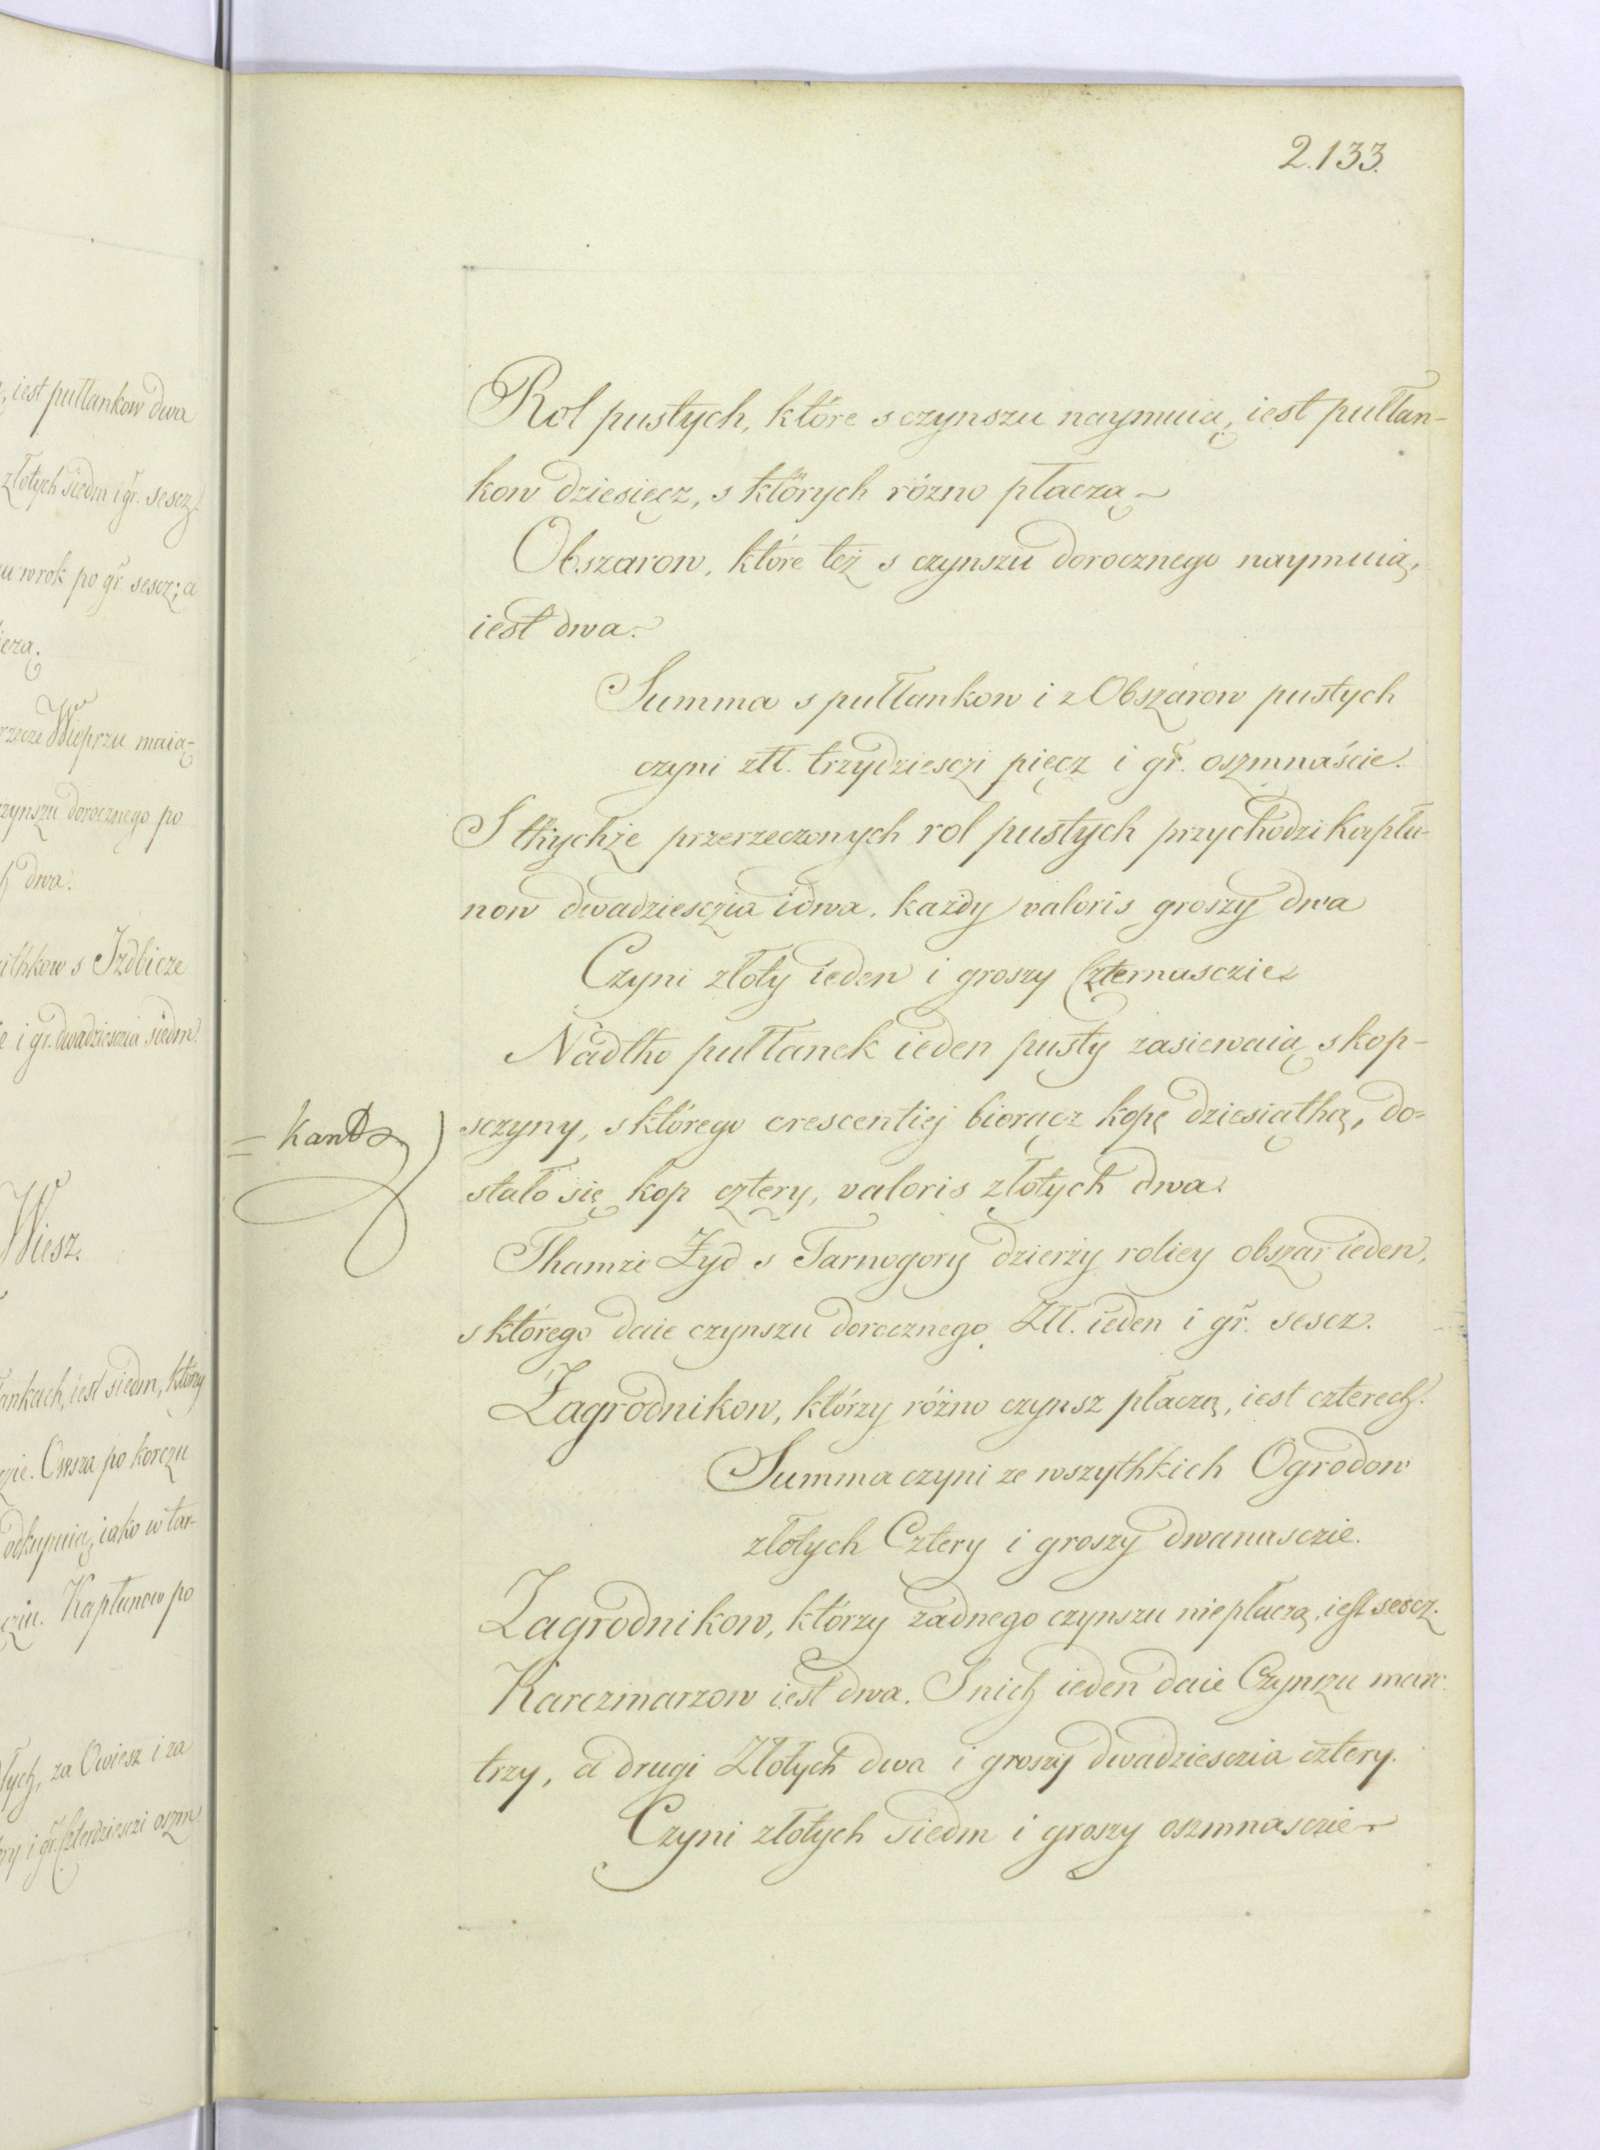 , iest pułłankow dwa
złotych siedm i gr. sescz.
wrok po gr. sescz; a
Wieprzu maią-
czynszu dorocznego po
dwa.
s Izdbicze
i gr. dwadziesczia siedm.
Wiesz.
iest siedm, którzy
Owsa po korczu
odkupuią, iako w tar-
Kapłunow po
za Owiesz i za
i gr. Czterdziesczi oszm
2.133.
Rol pustych, które s czynszu naymuią, iest pułłan-
kow dziesięcz, s których rózno płaczą
Obszarow, które też s czynszu dorocznego naymuią,
iest dwa.
Summa s pułłankow i z Obszárow pustych
czyni złł. trzydziesczi pięcz i gr. oszmnaście.
S tkychże przerzeczonych rol pustych przychodzi Kapłu-
now dwadziesczia i dwa, każdy valoris groszy dwa
Czyni złoty ieden i groszy Czternasczie
Nadtho pułłanek ieden pusty zasiewaią s kop-
= kanθ
sczyny, s którego crescentiej biorącz kopę dziesiąthą, do=
stało się kop cztery, valoris złotych dwa.
Thamże Żyd s Tarnogory dzierży roliey obszar ieden,
s którego daie czynszu dorocznego Złł. ieden i gr. sescz.
Zagrodnikow, którzy różno czynsz płaczą, iest czterech.
Summa czyni ze wszythkich Ogrodow
złotych Cztery i groszy dwanasczie.
Zagrodnikow, którzy żadnego czynszu niepłaczą, iest sescz.
Karczmarzow iest dwa. S nich ieden daie Czynszu marc.
trzy, a drugi Złotych dwa i groszy dwadziesczia cztery.
Czyni złotych siedm i groszy oszmnasczie